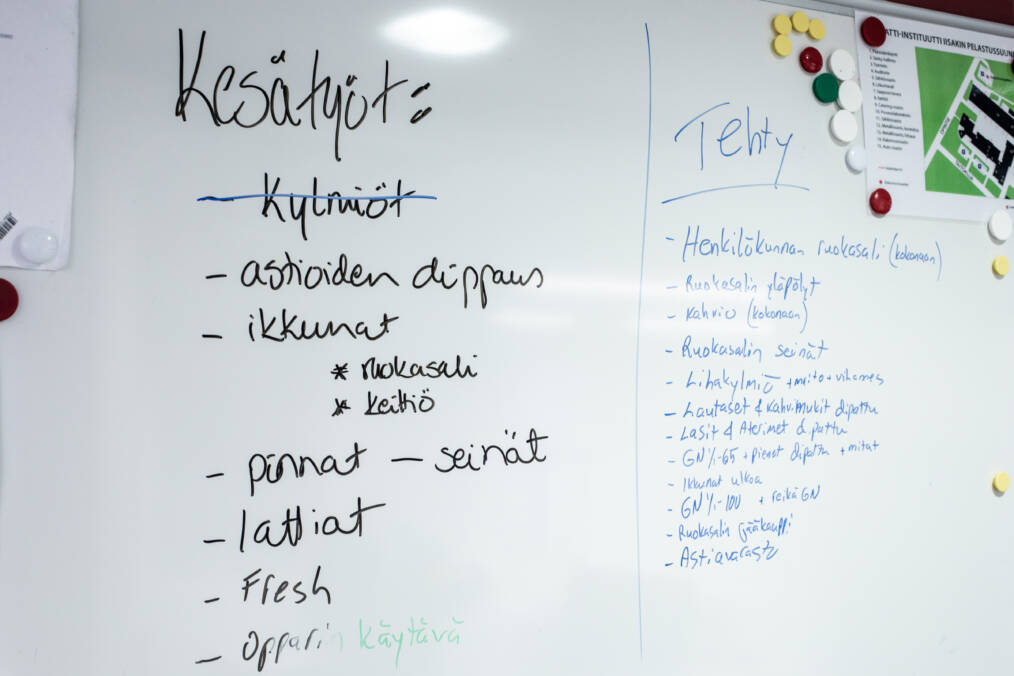 Kesätyöt:
- Kylmiöt
- astioiden dippaus
- ikkunat
* ruokasali
* keittiö
- pinnat - seinät
- lattiat
- Fresh
- Opparin käytävä
Tehty
- Henkilökunnan ruokasali (kokonaan)
- Ruokasalin yläpölyt
- Kahvio (kokonaan)
- Ruokasalin seinät
- Lihakylmiö + maito + vihannes
- Lautaset & Kahvimukit dipattu
- Lasit & Aterimet dipattu
- GN 1/1-65 + pienet dipattu + mitat
- Ikkunat ulkoa
- GN 1/1-100 + reikä GN
- Ruokasalin jääkaappi
- Astiavarasto
ATTI-INSTITUUTTI IISAKIN PELASTUSSUUN